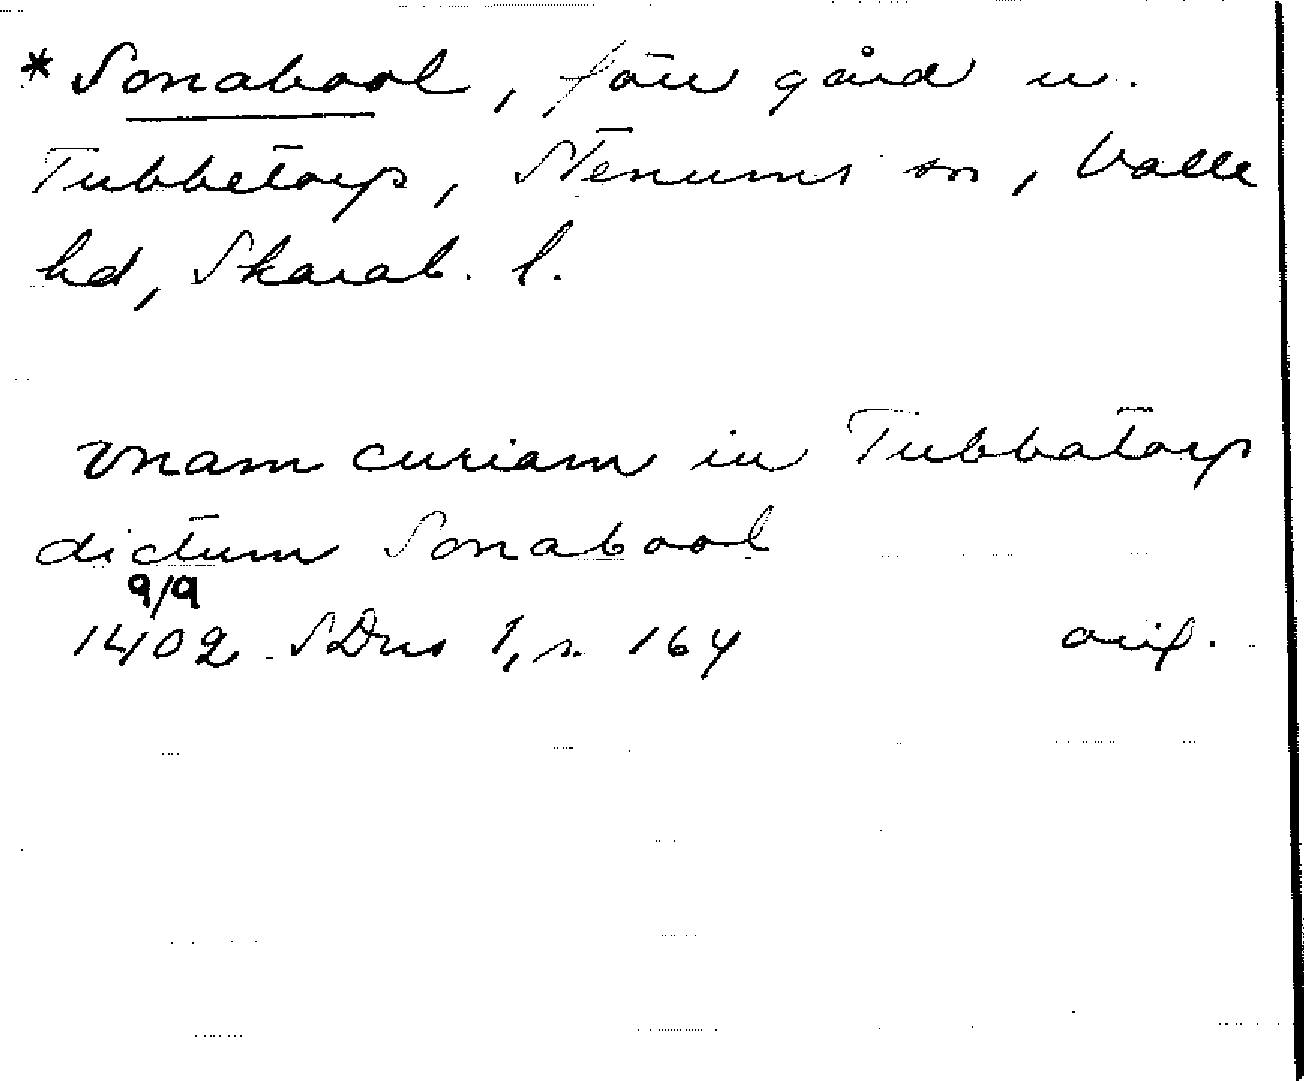 *Sonabool, förr gård u.
Tubbetorp, Stenums sn, Valle
hd, Skarab. l.
vnam curiam in Tubbatorp
dictum Sonabool
9/9
1402 SDns 1, s. 164 orig.